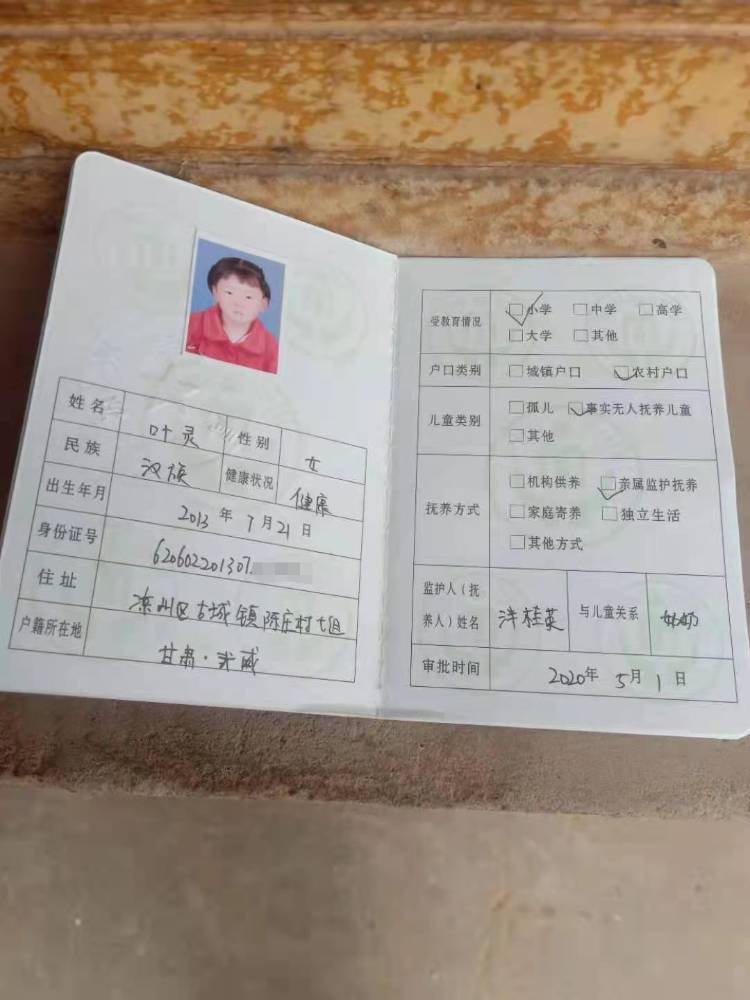 姓名 叶灵 性别 女
民族 汉族 健康状况 健康
出生年月 2013年7月21日
身份证号 620602201307
住址 凉州区古城镇陈庄村七组
户籍所在地 甘肃·武威
受教育情况 小学 中学 高学
大学 其他
户口类别 城镇户口 农村户口
儿童类别 孤儿 事实无人抚养儿童
其他
抚养方式 机构供养 亲属监护抚养
家庭寄养 独立生活
其他方式
监护人(抚
养人)姓名 桂英 与儿童关系 奶奶
审批时间 2020年5月1日